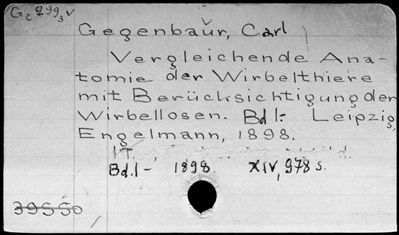 Gegenbaur, Carl
Vergleichende Ana-
tomie der Wirbelthiere
mit Berücksichtigung der
Wirbellosen. Bd I- Leipzig,
Engelmann, 1898.
Bd. I- 1898. XIV, 978 s.
39550